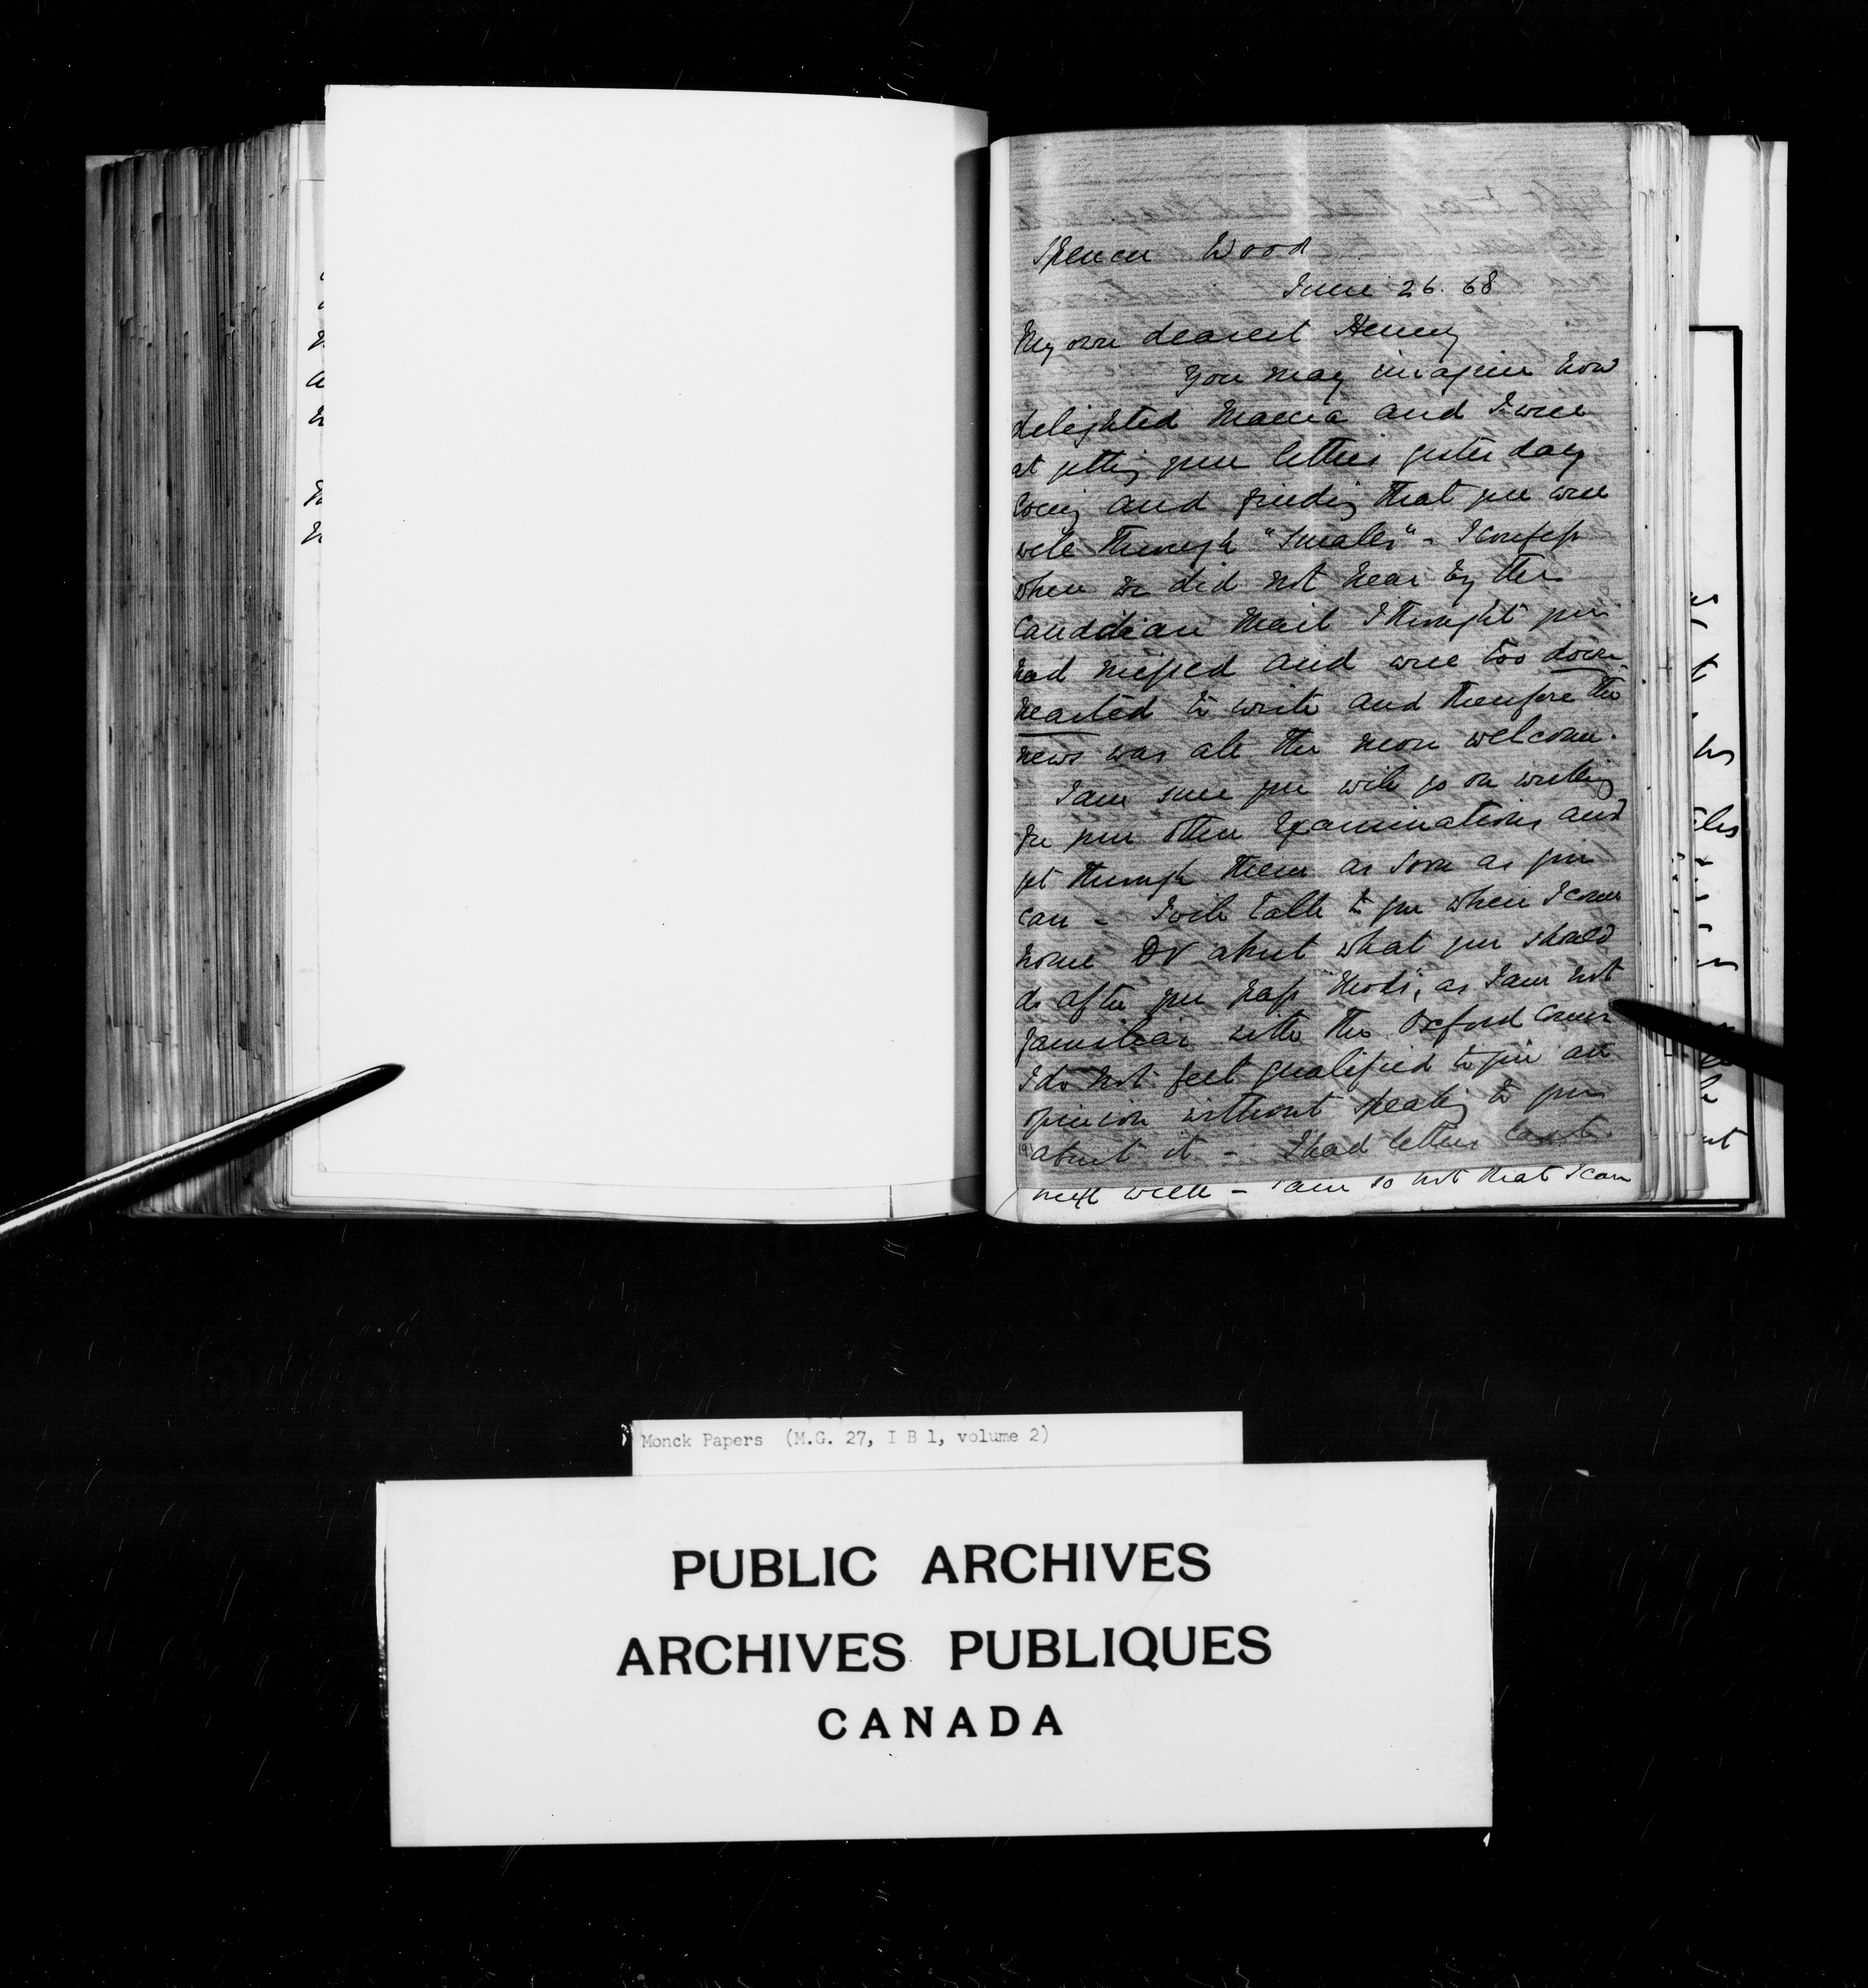 Spencer Wood
June 26. 68
My own dearest Henry
You may imagine how
delighted Mama and I were
at getting your letters yesterday
and finding that you were
well through "Smalls" - I confess
when we did not hear by the
Canadian Mail I thought you
had missed and were too down
hearted to write and therefore the
news was all the more welcome.
I am sure you will go on working
for your other Examinations and
get through them as soon as you
can - I will talk to you when I come
home DV about what you should
do after you pass "Mods", as I am not
familiar with the Oxford Course
I do not feel qualified to give an
opinion without speaking to you
about it - I had letters last
next week - I am so hot that I can
Monck Papers (M.G. 27, I B 1, volume 2)
PUBLIC ARCHIVES
ARCHIVES PUBLIQUES
CANADA